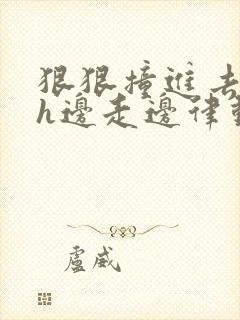 狠狠撞進去
h邊走邊律動
盧威